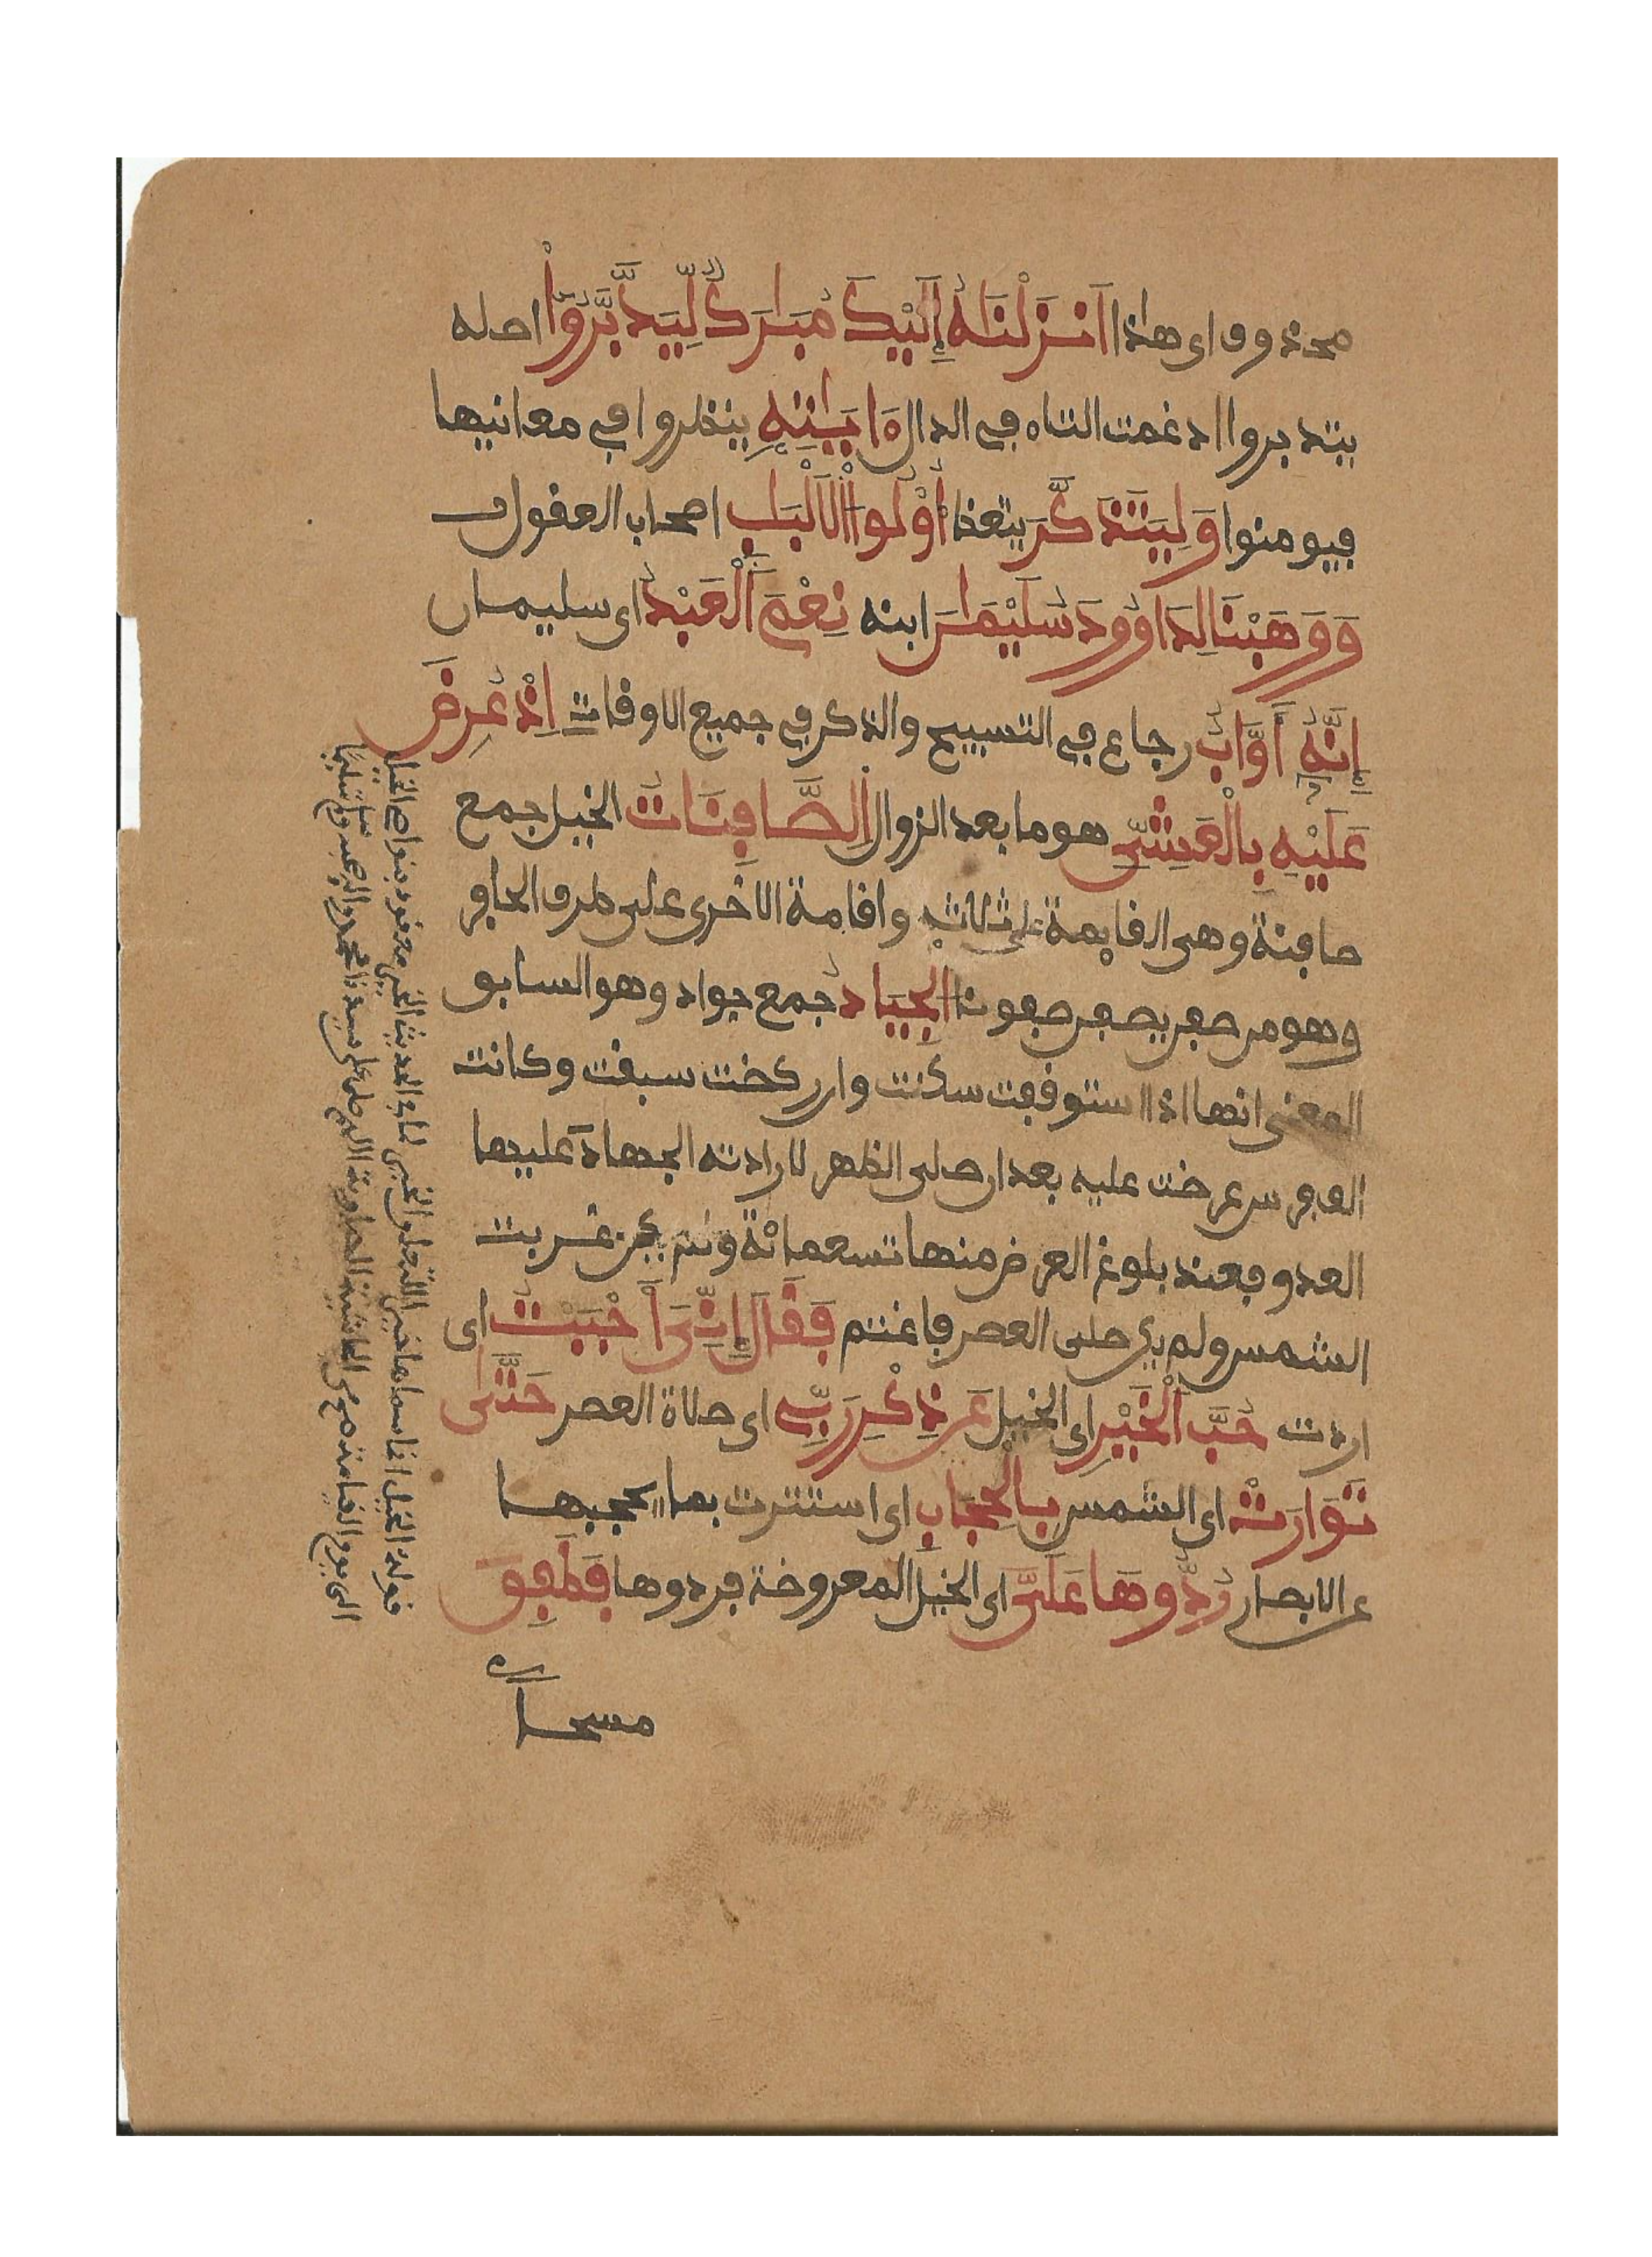 محذوف اى هاذا اَنزَلْنَٰهُ إِلَيْكَ مُبَٰرَكٌ لِّيَدَّبَّرُوٓاْ اصله
يتدبروا ادغمت التاء في الدال ءَايَٰتِهِۦ ينظروا في معانيها
فيومنوا وَلِيَتَذَكَّرَ يتعظ أُوْلُواْ اَ۬لَالْبَٰبِ اصحاب العقول
وَوَهَبْنَا لِدَاوُۥدَ سُلَيْمَٰنَ ابنه نِعْمَ اَ۬لْعَبْدُ اى سليمان
إِنَّهُۥٓ أَوَّابٌ رجاع في التسبيح والذكر في جميع الاوقات اِذْ عُرِضَ
عَلَيْهِ بِالْعَشِيِّ هو ما بعد الزوال اَ۬لصَّٰفِنَاتُ الخيل جمع
صافنة وهى القايمة على ثلاث واقامة الاخرى على طرف الحافر
وهو من صفن يصفن صفونا اَ۬لْجِيَادُ جمع جواد وهو السابق
المعنى انها اذا استوقفت سكنت وان ركضت سبقت وكانت
الف فرس عرضت عليه بعد ان صلى الظهر لارادته الجهاد عليها
العدو فعند بلوغ العرض منها تسعمائة غربت
الشمس ولم يكن صلى العصر فاغتم فَقَالَ إِنِّيَ أَحْبَبْتُ اى
اردت حُبَّ اَ۬لْخَيْرِ اى الخيل عَن ذِكْرِ رَبِّے اى صلاة العصر حَتَّىٰ
تَوَارَتْ اى الشمس بِالْحِجَابِ اى استترت بما يحجبها
عن الابصار رُدُّوهَا عَلَيَّ اى الخيل المعروضة فردوها فَطَفِقَ
مسحا
قوله الخيل انما سماها خيرا لتعلق الخير بها وفي الحديث الخير معقود بنواصى الخيل
الى يوم القيامة